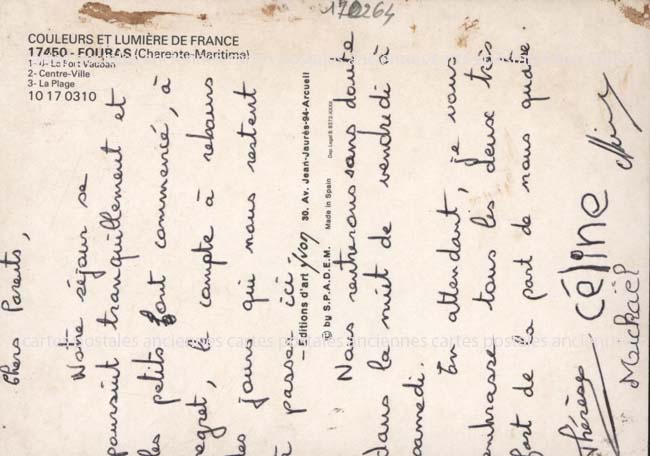 170264
COULEURS ET LUMIÈRE DE FRANCE
17450 - FOURAS (Charente-Maritime)
1-4- Le Fort Vauban
2- Centre-Ville
3- La Plage
10 17 0310
Chers Parents,
Notre séjour se
poursuit tranquillement et
les petits ont commencé, à
regret, le compte à rebours
des jours qui nous restent
à passer ici.
— Editions d'art yvon 30. Av. Jean-Jaurès-94-Arcueil
© by S.P.A.D.E.M. Made in Spain Dep. Legal B.
Nous rentrerons sans doute
dans la nuit de vendredi à
samedi.
En attendant, je vous
embrasse tous les deux très
fort de la part de nous quatre.
Thérèse
CÉline
Michaël
cartes postales anciennes cartes postales anciennes cartes postales anciennes